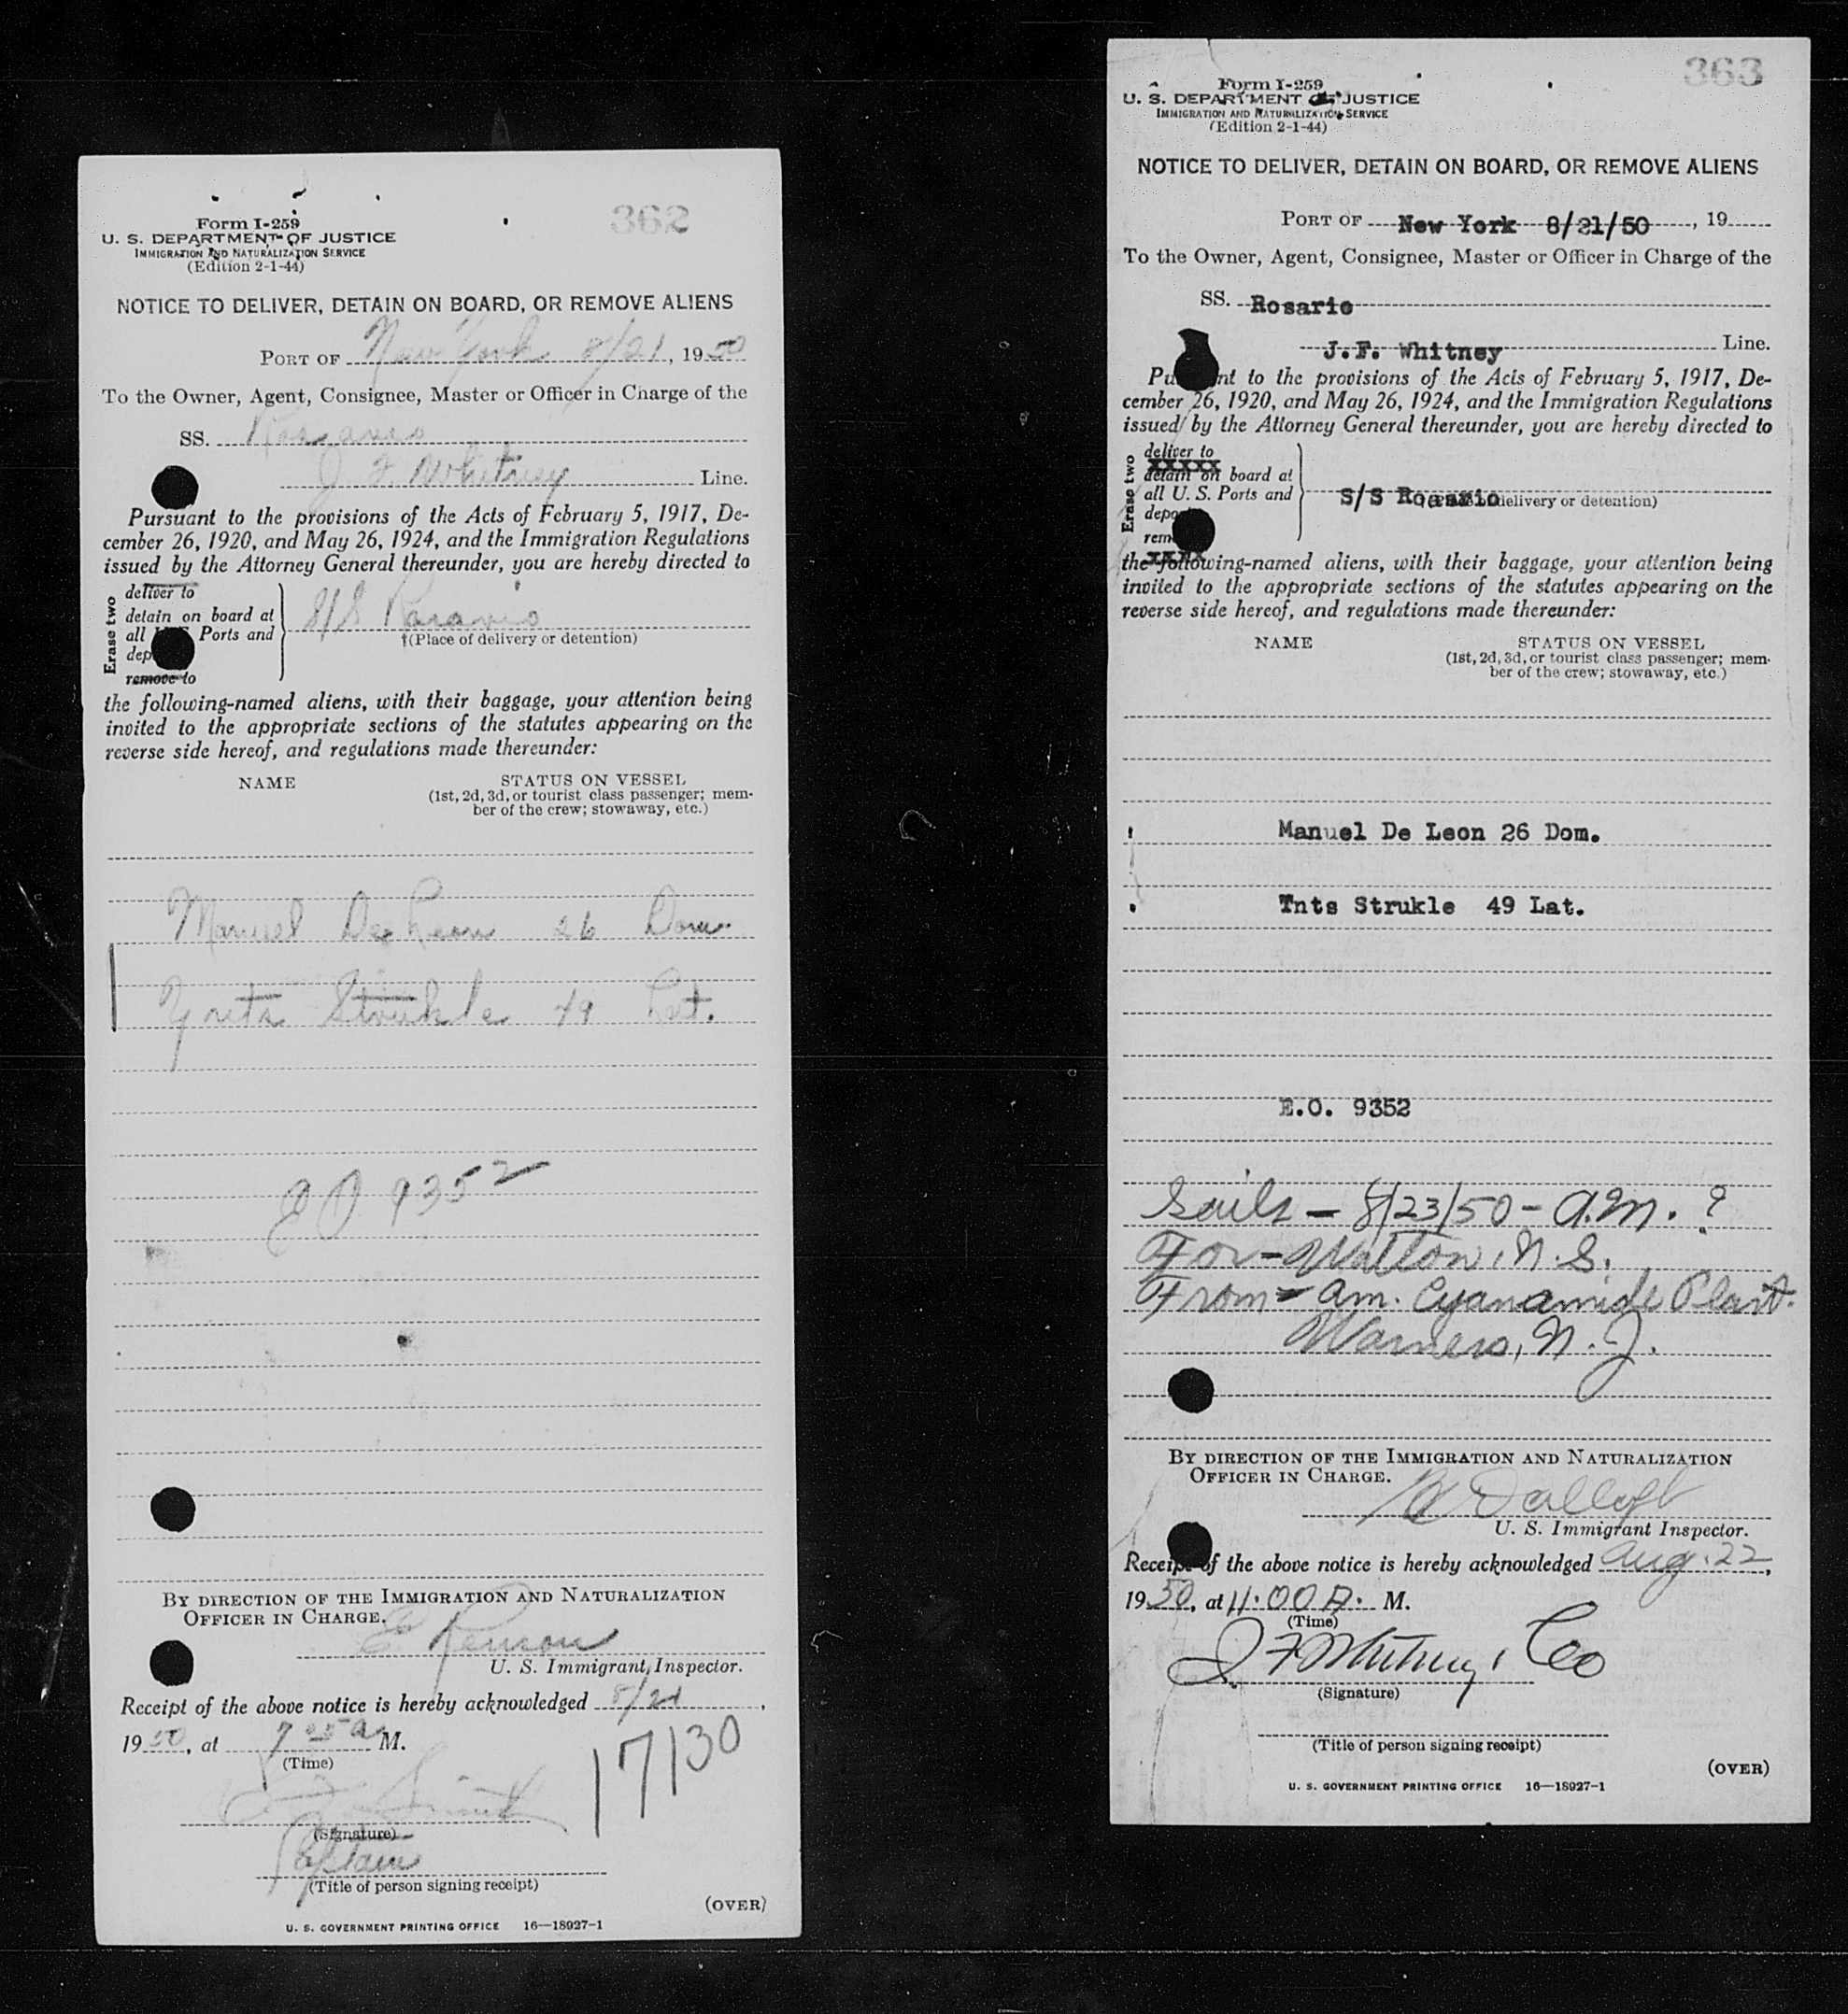 362
Form I-259
U. S. DEPARTMENT OF JUSTICE
IMMIGRATION AND NATURALIZATION SERVICE
(Edition 2-1-44)
NOTICE TO DELIVER, DETAIN ON BOARD, OR REMOVE ALIENS
PORT OF New York 8/21, 1950
To the Owner, Agent, Consignee, Master or Officer in Charge of the
SS. Rosario
J F Whitney Line.
Pursuant to the provisions of the Acts of February 5, 1917, De-
cember 26, 1920, and May 26, 1924, and the Immigration Regulations
issued by the Attorney General thereunder, you are hereby directed to
Erase two
deliver to
detain on board at
all Ports and
dep
remove to
S/S Rosario
†(Place of delivery or detention)
the following-named aliens, with their baggage, your attention being
invited to the appropriate sections of the statutes appearing on the
reverse side hereof, and regulations made thereunder:
NAME STATUS ON VESSEL
(1st, 2d, 3d, or tourist class passenger; mem-
ber of the crew; stowaway, etc.)
Manuel De Leon 26 Dom.
Strukle 49 Lat.
EO 9352
BY DIRECTION OF THE IMMIGRATION AND NATURALIZATION
OFFICER IN CHARGE.
U. S. Immigrant Inspector.
Receipt of the above notice is hereby acknowledged 8/21,
1950, at M.
(Time)
17130
(Signature)
Captain
(Title of person signing receipt)
(OVER)
U. S. GOVERNMENT PRINTING OFFICE 16—18927-1
363
Form I-259
U. S. DEPARTMENT OF JUSTICE
IMMIGRATION AND NATURALIZATION SERVICE
(Edition 2-1-44)
NOTICE TO DELIVER, DETAIN ON BOARD, OR REMOVE ALIENS
PORT OF New York 8/21/50, 19
To the Owner, Agent, Consignee, Master or Officer in Charge of the
SS. Rosario
J.F. Whitney Line.
Pu nt to the provisions of the Acts of February 5, 1917, De-
cember 26, 1920, and May 26, 1924, and the Immigration Regulations
issued by the Attorney General thereunder, you are hereby directed to
Erase two
deliver to
xxxxx
detain on board at
all U. S. Ports and
depo
rem
xxxx
S/S Rosario
delivery or detention)
the following-named aliens, with their baggage, your attention being
invited to the appropriate sections of the statutes appearing on the
reverse side hereof, and regulations made thereunder:
NAME STATUS ON VESSEL
(1st, 2d, 3d, or tourist class passenger; mem-
ber of the crew; stowaway, etc.)
Manuel De Leon 26 Dom.
Tnts Strukle 49 Lat.
E.O. 9352
Sails — 8/23/50 - A.M. ?
For - Walton, N.S.
From - Am. Cyanamide Plant.
Warners, N.J.
BY DIRECTION OF THE IMMIGRATION AND NATURALIZATION
OFFICER IN CHARGE.
U. S. Immigrant Inspector.
Receipt of the above notice is hereby acknowledged Aug. 22,
1950, at 11:00 A. M.
(Time)
J F Whitney, Co
(Signature)
(Title of person signing receipt)
(OVER)
U. S. GOVERNMENT PRINTING OFFICE 16—18927-1